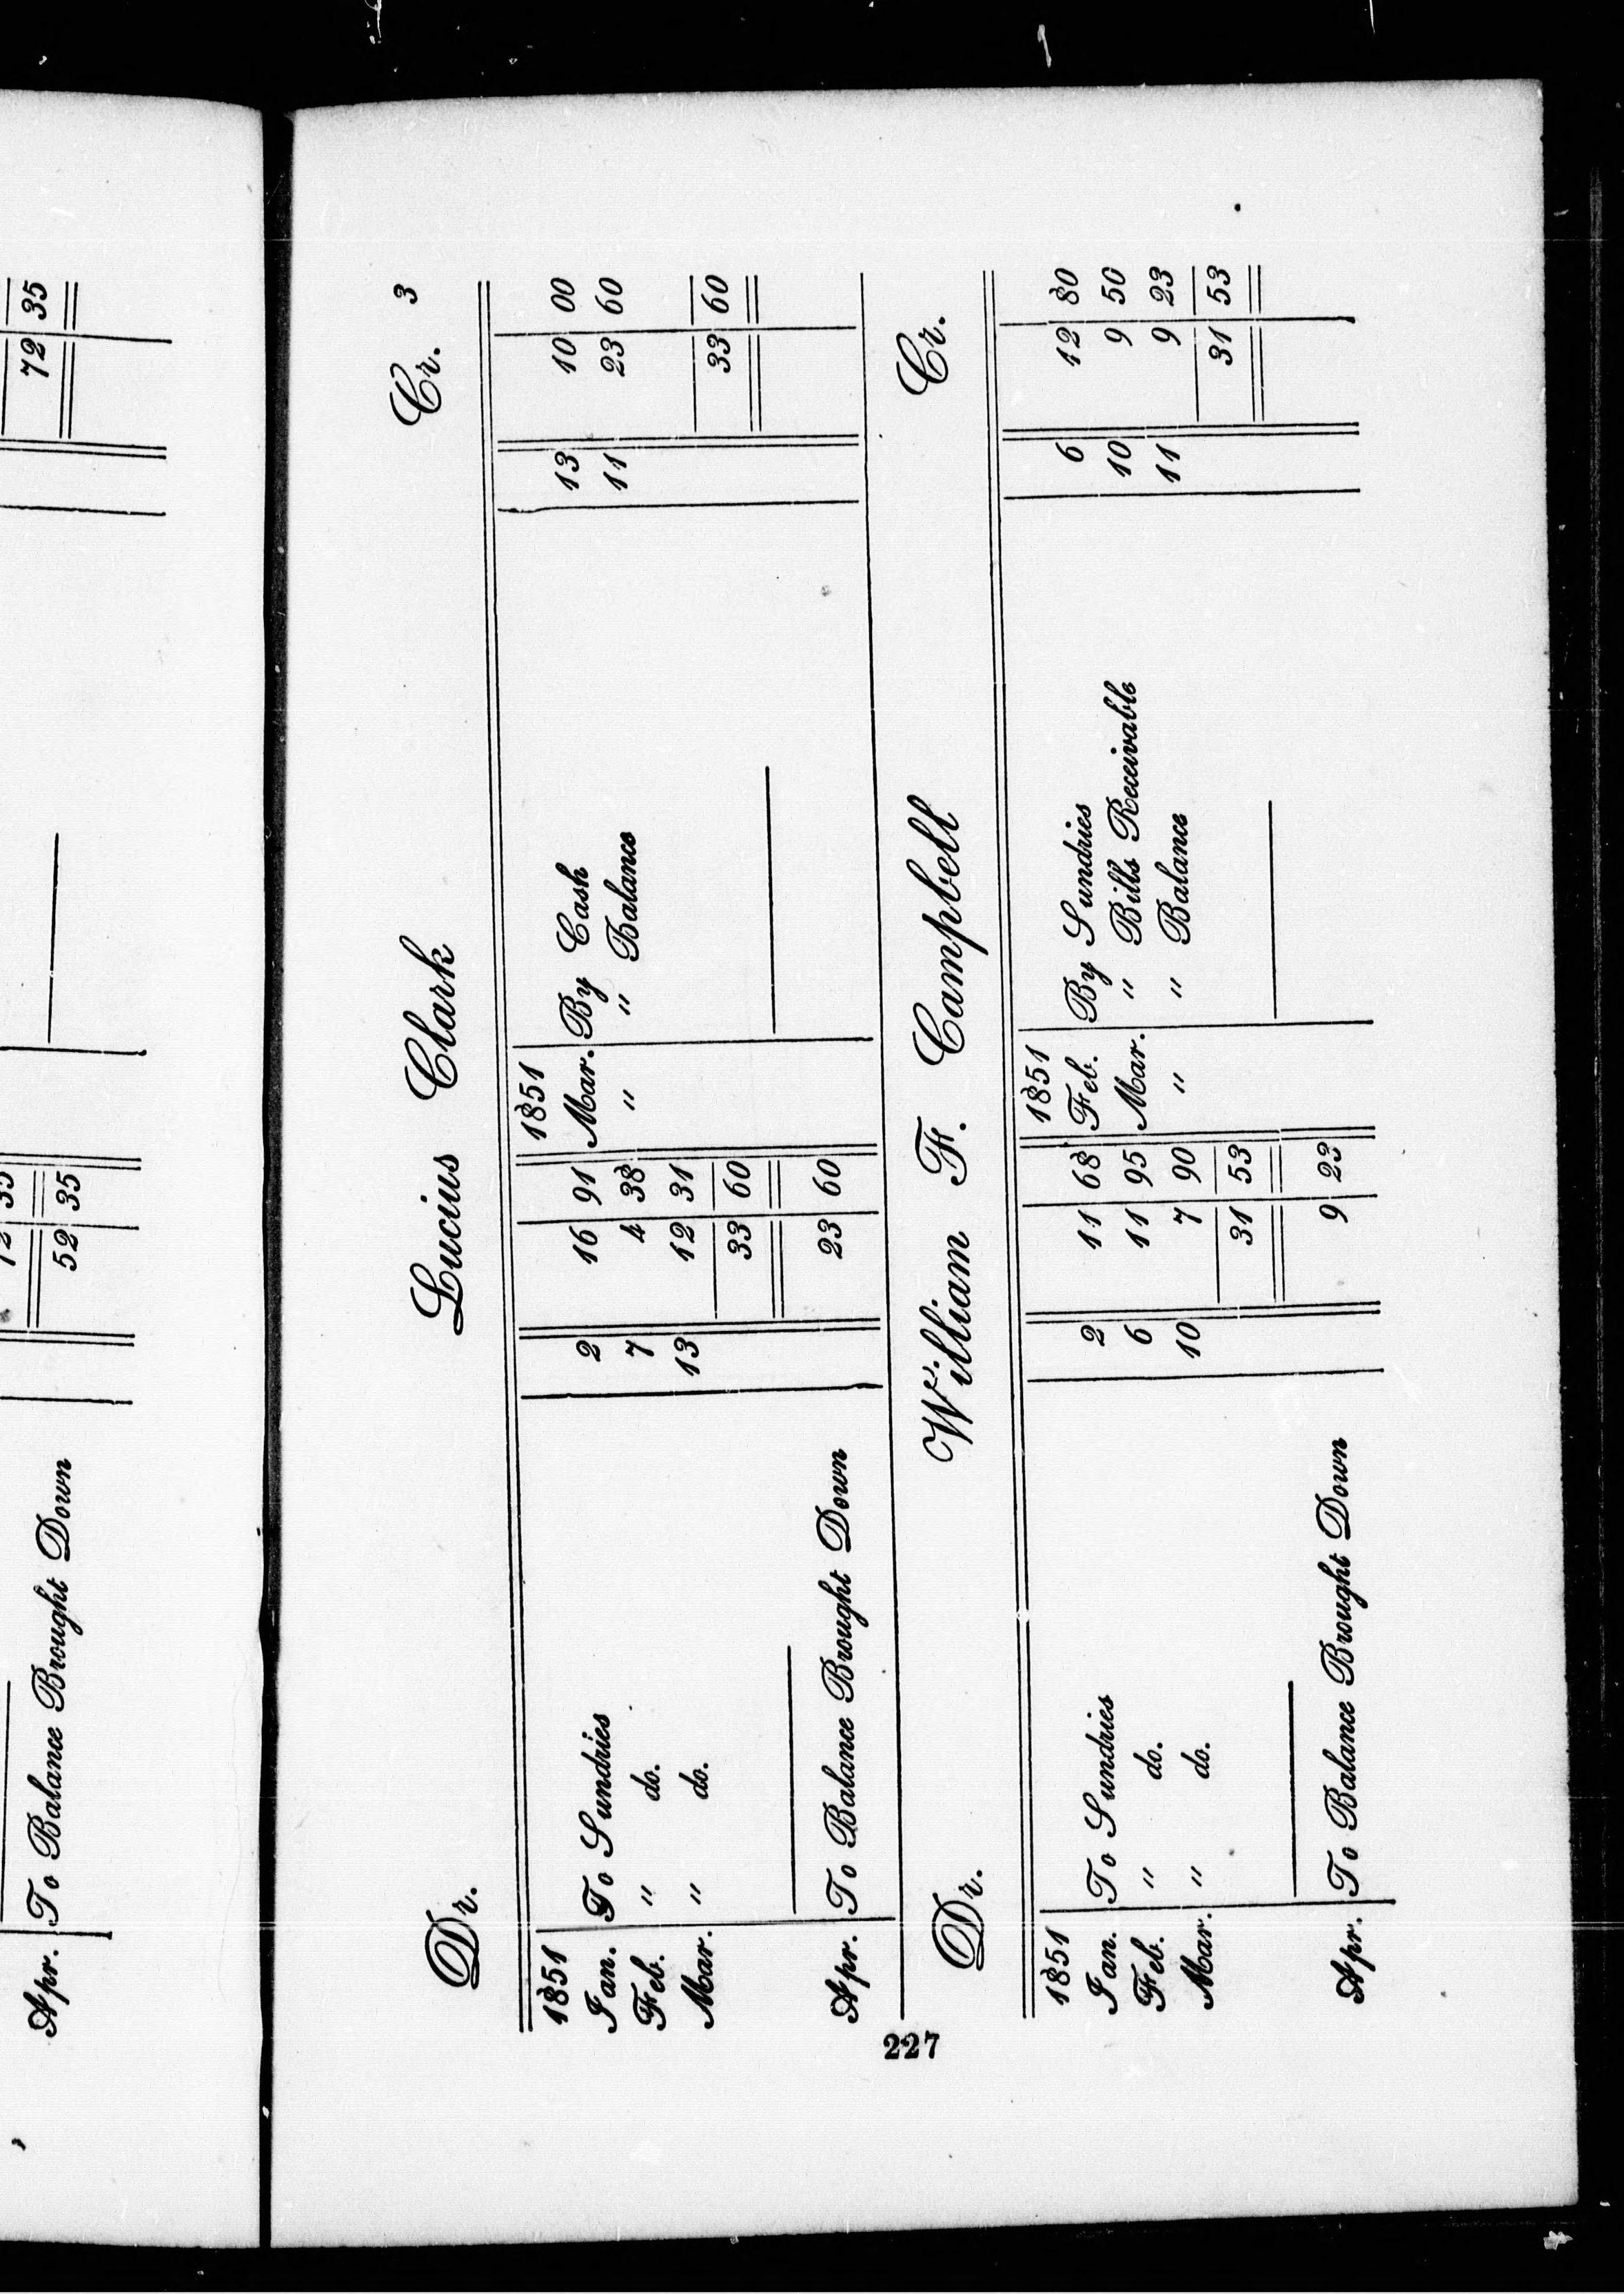 35
52 35
72 35
Apr. To Balance Brought Down
3
Dr. Lucius Clark Cr.
1851 1851
Jan. To Sundries 2 16 91 Mar. By Cash 13 10 00
Feb. " do. 7 4 38 " " Balance 11 23 60
Mar. " do. 13 12 31
33 60 33 60
Apr. To Balance Brought Down 23 60
Dr. William F. Campbell Cr.
1851 1851
Jan. To Sundries 2 11 68 Feb. By Sundries 6 12 80
Feb. " do. 6 11 95 Mar. " Bills Receivable 10 9 50
Mar. " do. 10 7 90 " " Balance 11 9 23
31 53 31 53
Apr. To Balance Brought Down 9 23
227